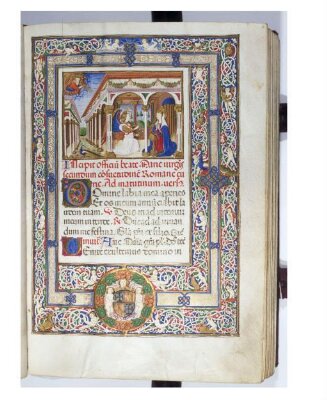 Incipit officiu beate Marie virgis
secundum cosuetudine Romane cu
rie. Ad matutinum. vers
Domine labia mea aperies
Et os meum annuciabit la
udem tuam. Deus in adiutorium
meum intende. Domine ad adiuvan
dum me festina. Gloria pri et filio
Ave Maria gra plena
Venite exultemus domino